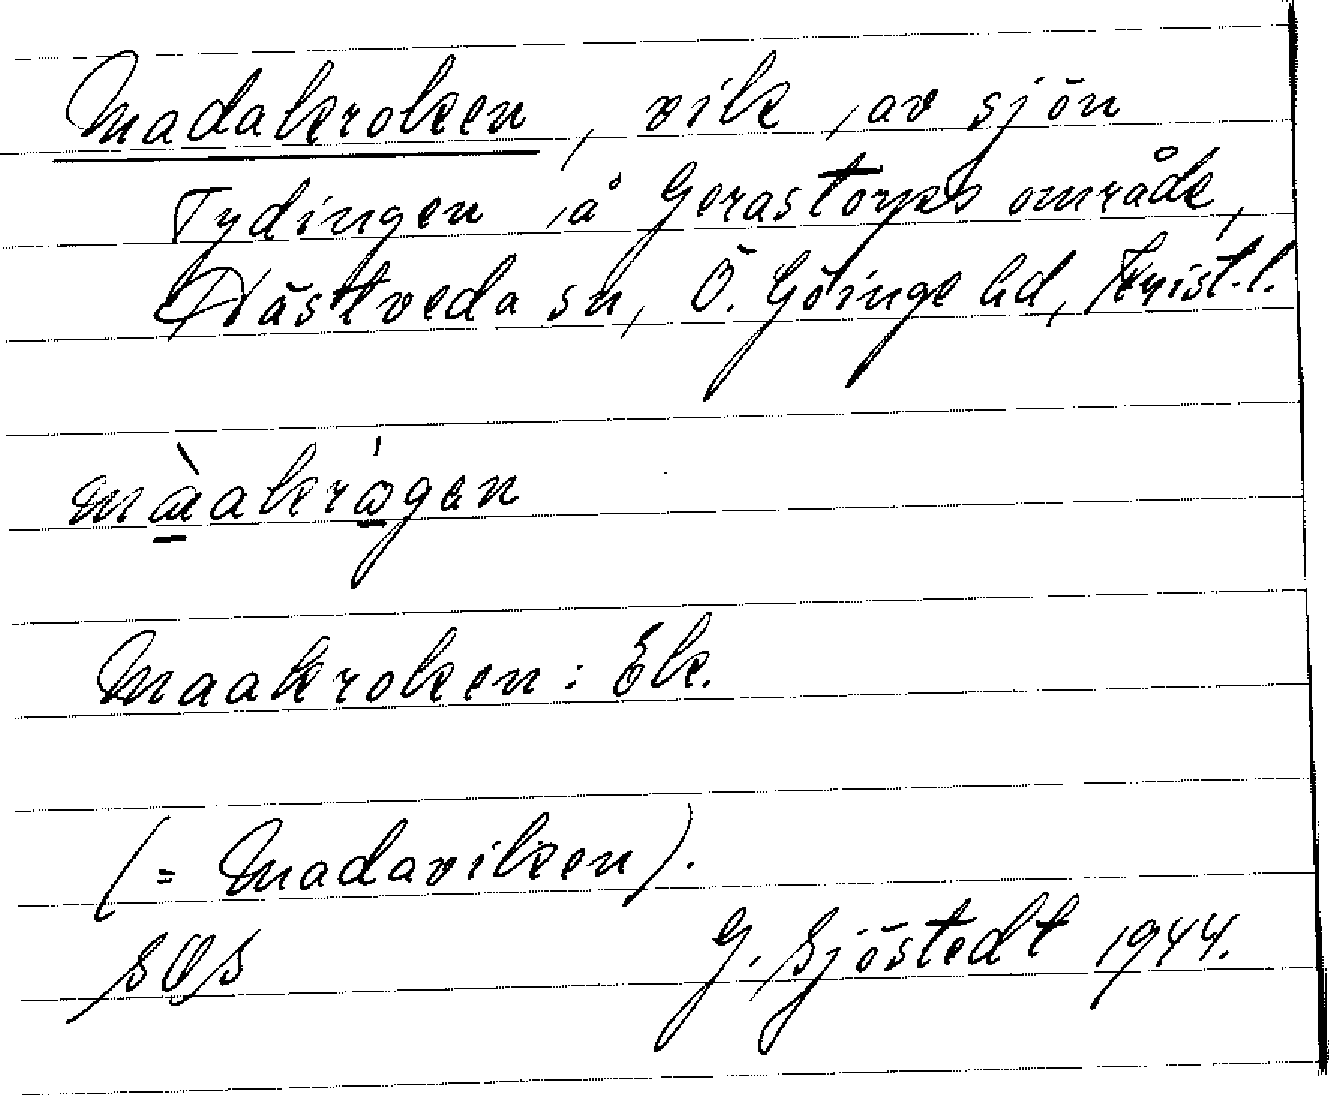 Madakroken, vik, av sjön
Tydingen, å Gerastorps område,
Hästveda sn, Ö. Göinge hd, Krist. l.
mæ̀akrågen
Maakroken: Ek.
(= Madaviken).
SOS G. Sjöstedt 1944.